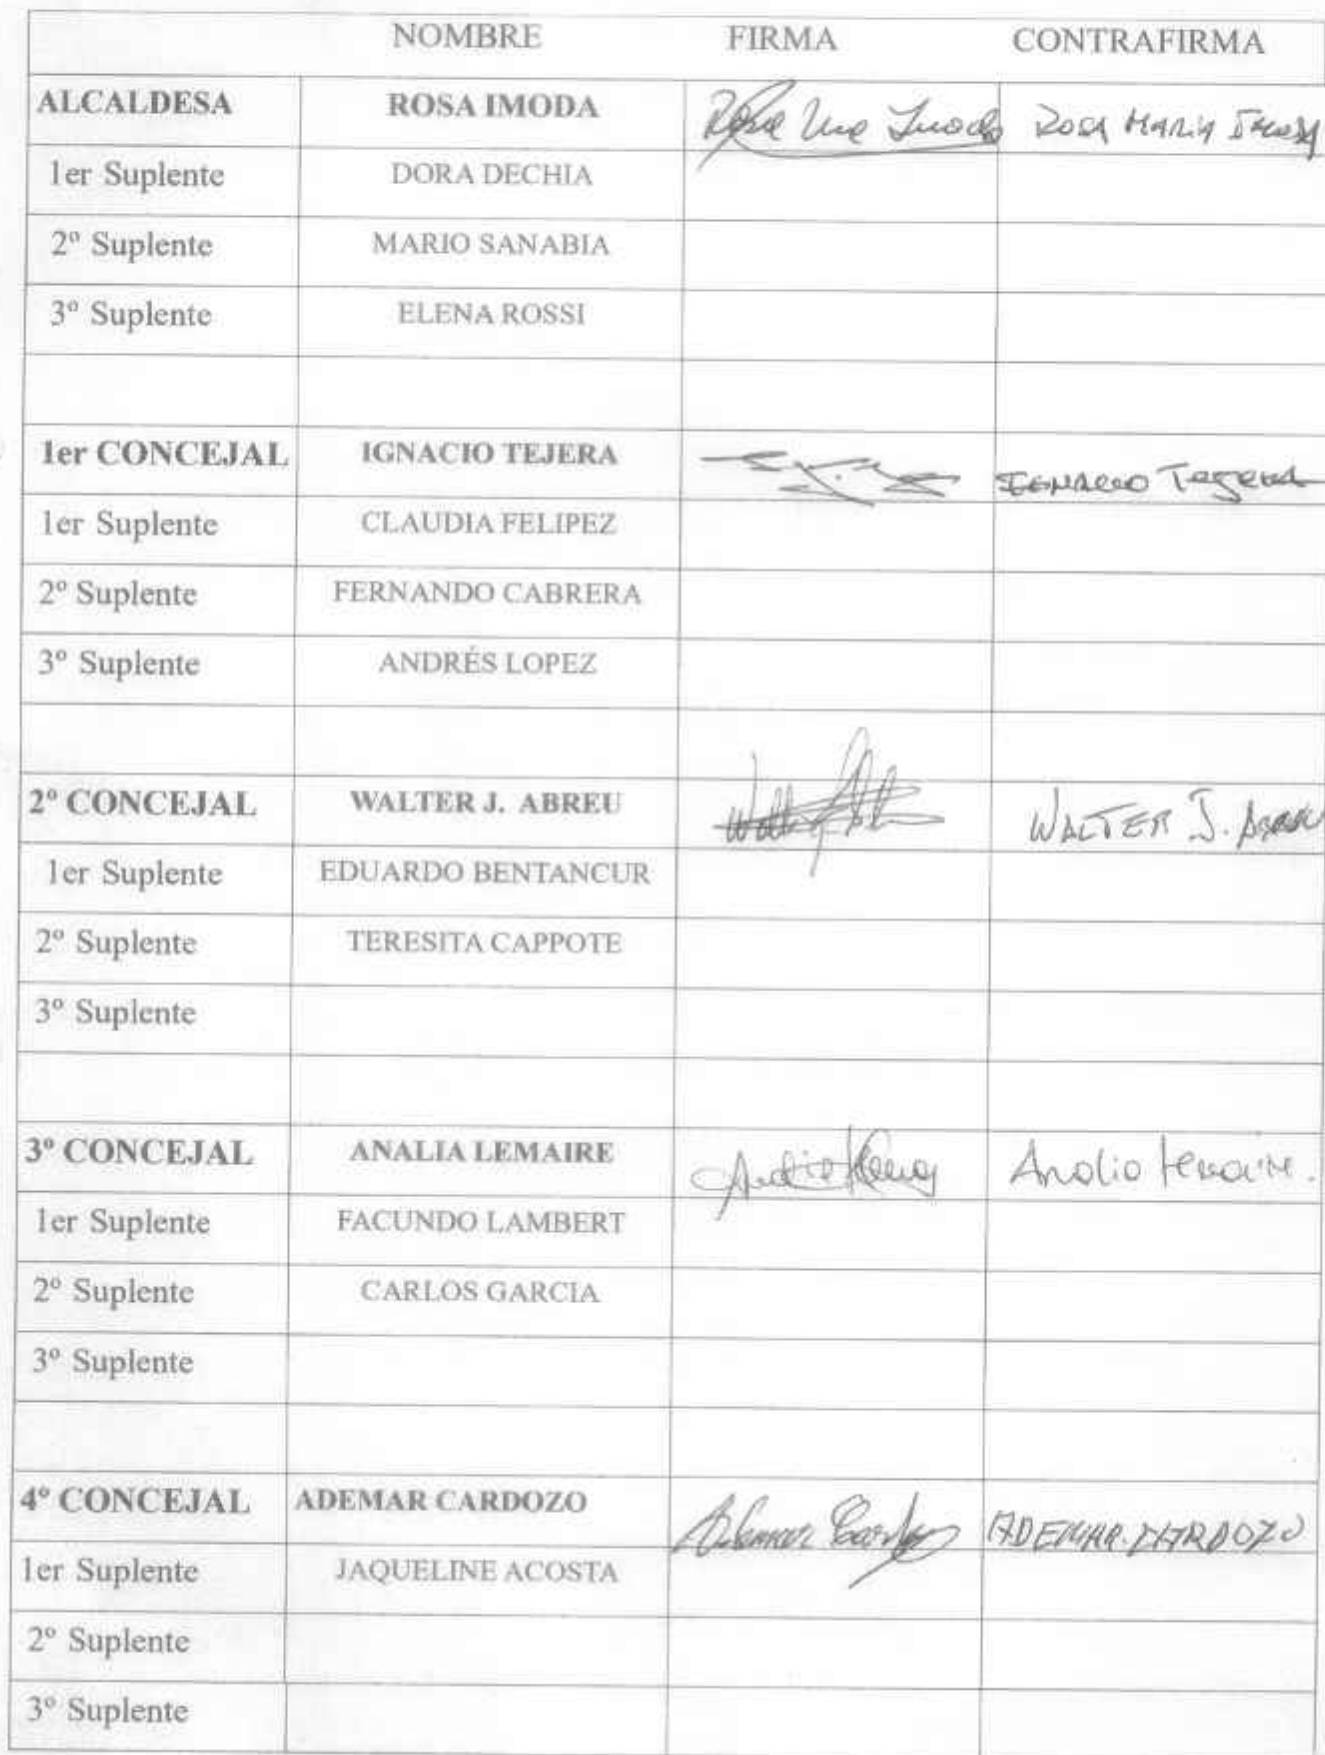 NOMBRE FIRMA CONTRAFIRMA
ALCALDESA ROSA IMODA Rosa Imoda ROSA MARIA IMODA
1er Suplente DORA DECHIA
2º Suplente MARIO SANABIA
3º Suplente ELENA ROSSI
1er CONCEJAL IGNACIO TEJERA IGNACIO TEJERA
1er Suplente CLAUDIA FELIPEZ
2º Suplente FERNANDO CABRERA
3º Suplente ANDRÉS LOPEZ
2º CONCEJAL WALTER J. ABREU WALTER J. ABREU
1er Suplente EDUARDO BENTANCUR
2º Suplente TERESITA CAPPOTE
3º Suplente
3º CONCEJAL ANALIA LEMAIRE Analia Lemaire.
1er Suplente FACUNDO LAMBERT
2º Suplente CARLOS GARCIA
3º Suplente
4º CONCEJAL ADEMAR CARDOZO Ademar Cardozo ADEMAR CARDOZO
1er Suplente JAQUELINE ACOSTA
2º Suplente
3º Suplente